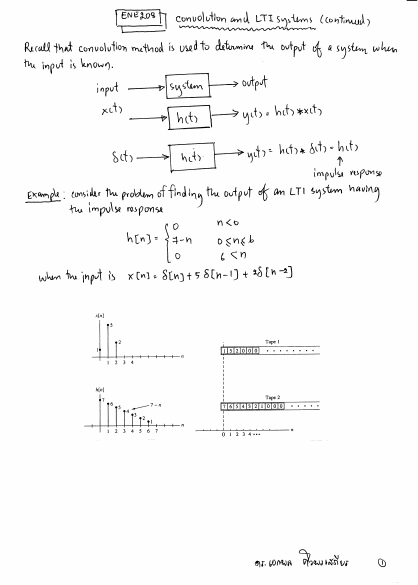 ENE208 convolution and LTI systems (continued)
Recall that convolution method is used to determine the output of a system when
the input is known.
input system output
x(t) h(t) y(t) = h(t) * x(t)
δ(t) h(t) y(t) = h(t) * δ(t) = h(t)
impulse response
Example : consider the problem of finding the output of an LTI system having
the impulse response
h[n] = { 0 n<0
7-n 0≤n≤6
0 6<n
when the input is x[n] = δ[n] + 5 δ[n-1] + 2δ[n-2]
x[n]
5
2
1
1 2 3 4 n
Tape 1
1 5 2 0 0 0
h[n]
7 6 5 4 3 2 1
7 - n
1 2 3 4 5 6 7 n
Tape 2
7 6 5 4 3 2 1 0 0 0
0 1 2 3 4 ...
1